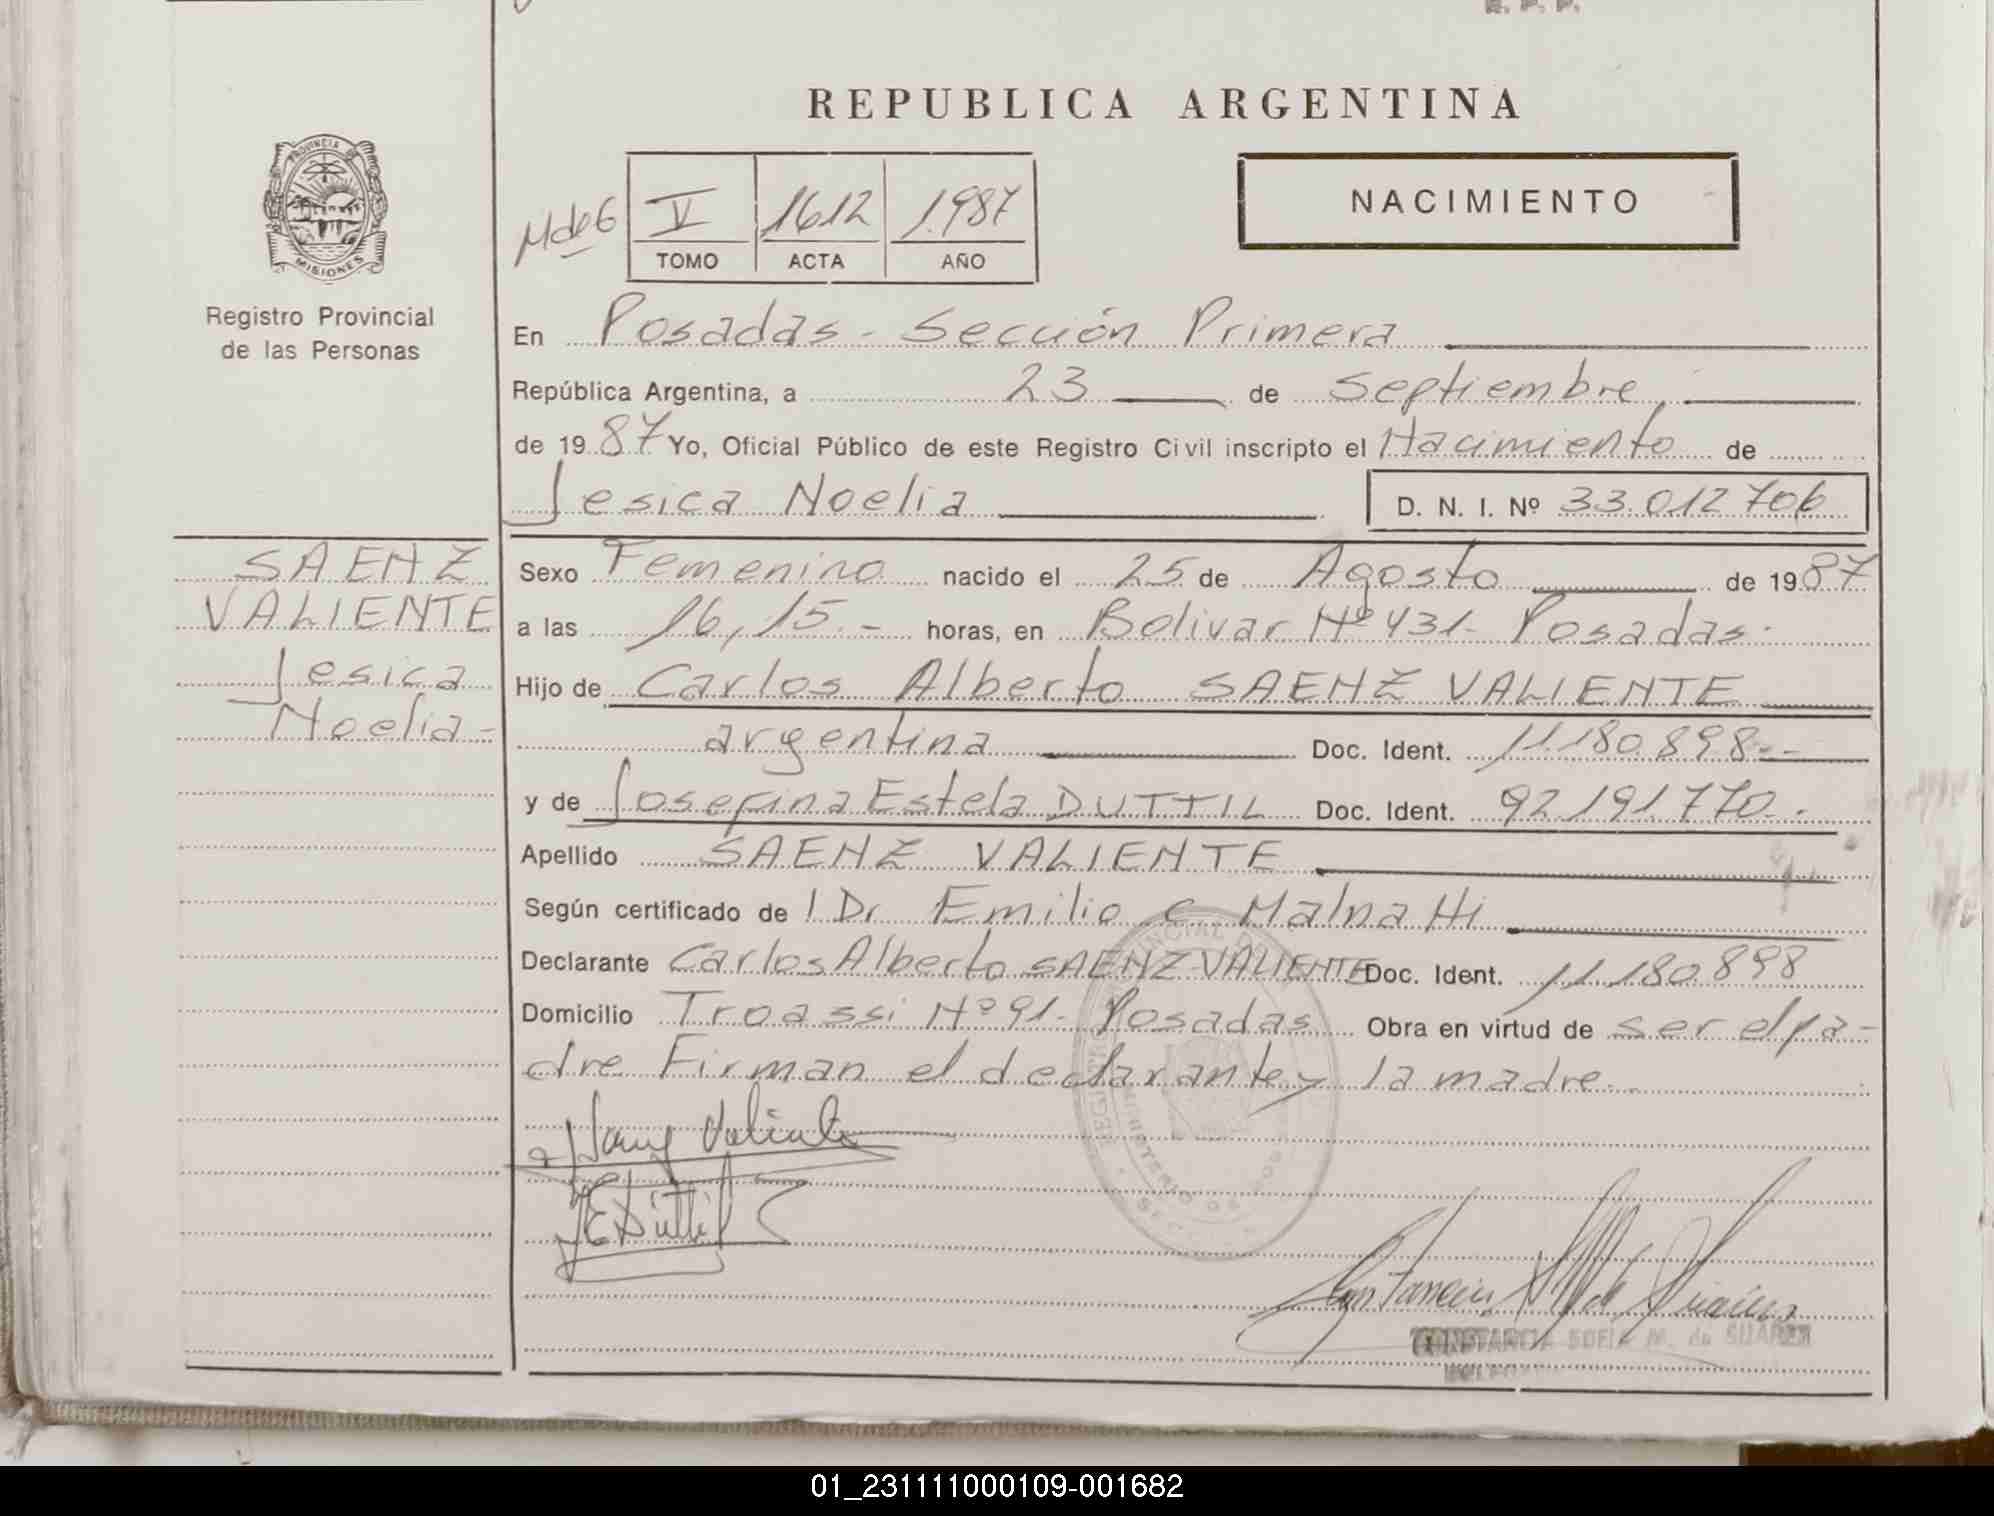 REPUBLICA ARGENTINA
NACIMIENTO
V 1612 1.987
TOMO ACTA AÑO
PROVINCIA DE
MISIONES
Registro Provincial
de las Personas
En Posadas - Sección Primera
República Argentina, a 23 de Septiembre
de 1987 Yo, Oficial Público de este Registro Civil inscripto el Nacimiento de
Jesica Noelia D. N. I. Nº 33.012.706
SAENZ
VALIENTE
Jesica
Noelia-
Sexo Femenino nacido el 25 de Agosto de 1987
a las 16,15.- horas, en Bolivar Nº 431- Posadas.
Hijo de Carlos Alberto SAENZ VALIENTE
argentina Doc. Ident. 11.180.898--
y de Josefina Estela DUTTIL Doc. Ident. 92.191.770.-
Apellido SAENZ VALIENTE
Según certificado del Dr Emilio C. Malnatti
Declarante Carlos Alberto SAENZ VALIENTE Doc. Ident. 11.180.898
Domicilio Troassi Nº 91- Posadas Obra en virtud de ser el pa-
dre Firman el declarante y la madre.
Valiente
JEDuttil
CONSTANCIA SOFIA M. de SUAREZ
01_231111000109-001682